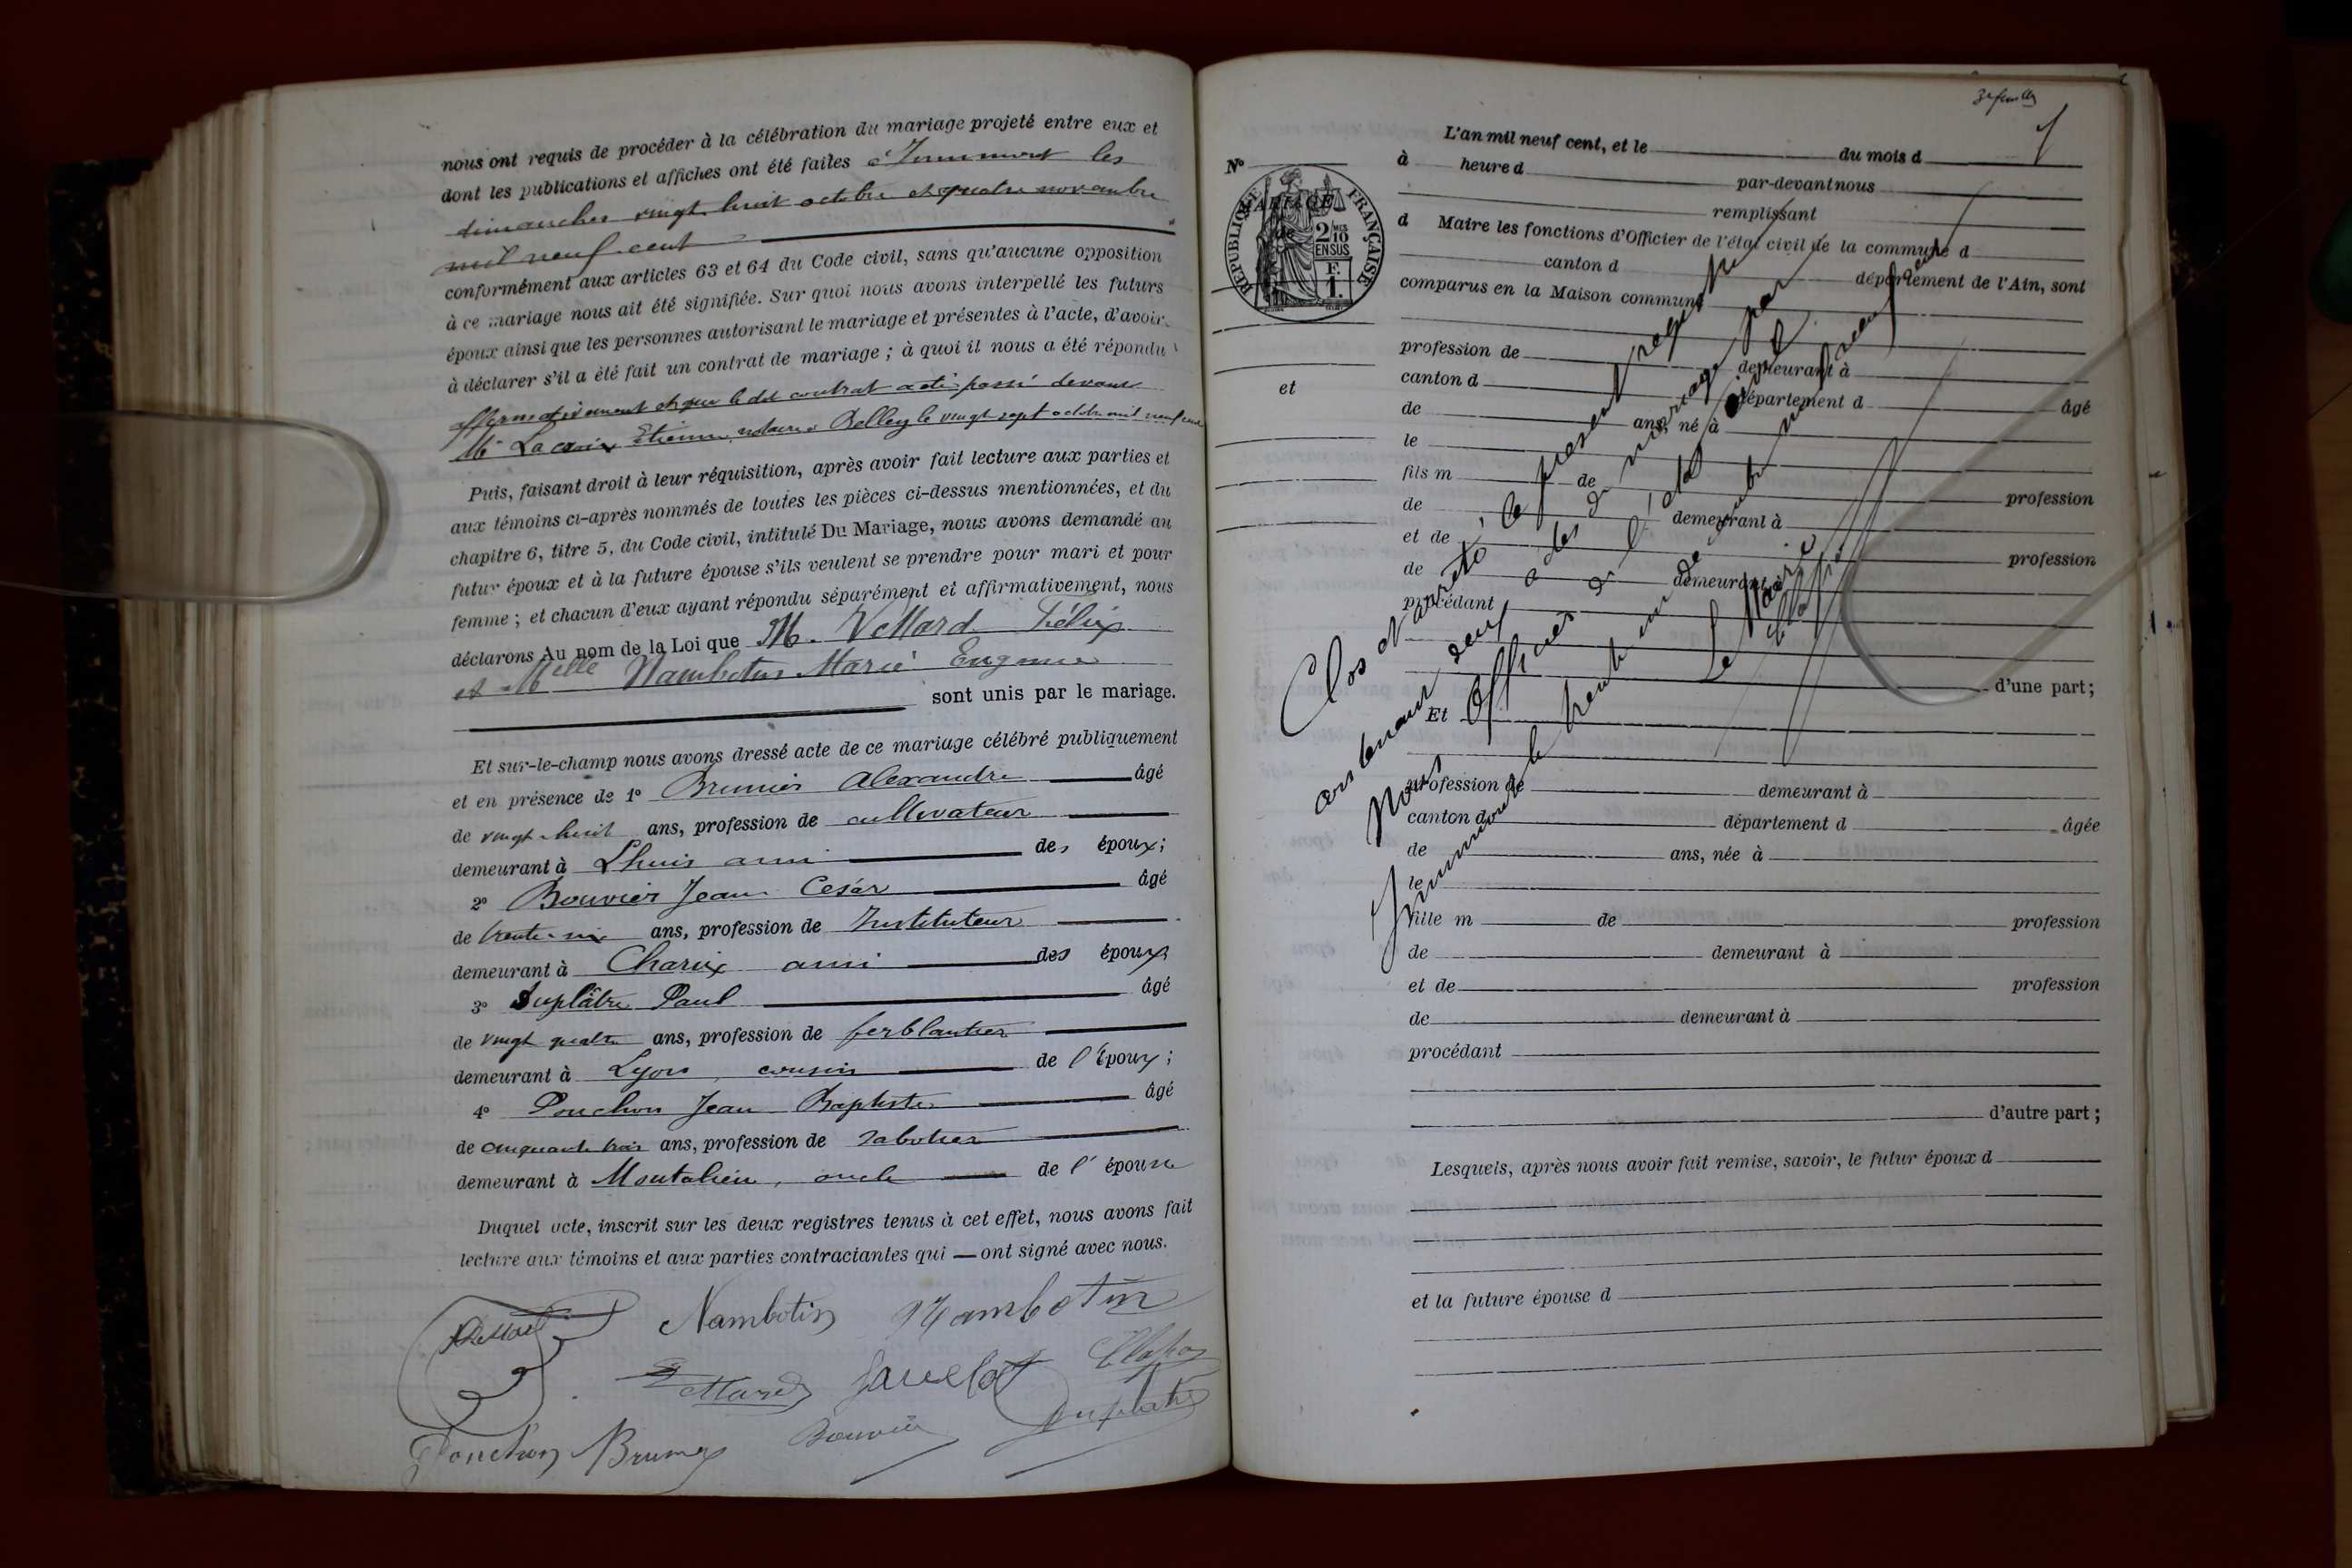 nous ont requis de procéder à la célébration du mariage projeté entre eux et
dont les publications et affiches ont été faites à les
dimanches vingt huit octobre et quatre novembre
mil neuf cent
conformément aux articles 63 et 64 du Code civil, sans qu'aucune opposition
à ce mariage nous ait été signifiée. Sur quoi nous avons interpellé les futurs
époux ainsi que les personnes autorisant le mariage et présentes à l'acte, d'avoir
à déclarer s'il a été fait un contrat de mariage ; à quoi il nous a été répondu
affirmativement et que le dit contrat a été passé devant
Me Lacroix Etienne notaire à Belley le vingt sept octobre mil neuf cent
Puis, faisant droit à leur réquisition, après avoir fait lecture aux parties et
aux témoins ci-après nommés de toutes les pièces ci-dessus mentionnées, et du
chapitre 6, titre 5, du Code civil, intitulé Du Mariage, nous avons demandé au
futur époux et à la future épouse s'ils veulent se prendre pour mari et pour
femme ; et chacun d'eux ayant répondu séparément et affirmativement, nous
déclarons Au nom de la Loi que M. Vettard Félix
et Melle Nambotin Marie Eugénie
sont unis par le mariage.
Et sur-le-champ nous avons dressé acte de ce mariage célébré publiquement
et en présence de 1° Brunier Alexandre âgé
de vingt-huit ans, profession de cultivateur
demeurant à Lhuis ami des époux ;
2° Bouvier Jean César âgé
de trente-six ans, profession de Instituteur
demeurant à Charix ami des époux
3° Duplâtre Paul âgé
de vingt quatre ans, profession de ferblantier
demeurant à Lyon, cousin de l'époux ;
4° Ponchon Jean Baptiste âgé
de cinquante trois ans, profession de sabotier
demeurant à Montalieu, oncle de l'épouse
Duquel acte, inscrit sur les deux registres tenus à cet effet, nous avons fait
lecture aux témoins et aux parties contractantes qui — ont signé avec nous.
Vettard Nambotin Nambotin
Javelot
Ponchon Brunier Bouvier Duplatre
3e feuille
N°
RÉPUBLIQUE FRANÇAISE
2/10
EN SUS
F.
1.
et
L'an mil neuf cent, et le du mois d
à heure d par-devant nous
remplissant
d Maire les fonctions d'Officier de l'état civil de la commune d
canton d département de l'Ain, sont
comparus en la Maison commune
profession de demeurant à
canton d département d âgé
de ans, né à
le
fils m de profession
de demeurant à
et de profession
de demeurant à
procédant
d'une part;
Et
profession de demeurant à
canton d département d âgée
de ans, née à
le
fille m de profession
de demeurant à
et de profession
de demeurant à
procédant
d'autre part ;
Lesquels, après nous avoir fait remise, savoir, le futur époux d
et la future épouse d
Clos et arrêté le présent registre
contenant deux actes de mariage par
Nous Officier de l'état civil
le trente un décembre mil neuf cent
Le Maire